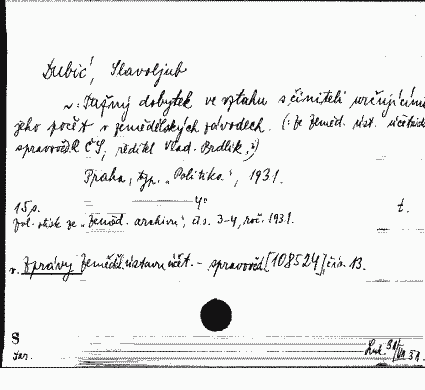 Dubić, Slavoljub
~: Tažný dobytek ve vztahu s činiteli určujícími
jeho počet v zemědělských závodech. (: Ze Zeměd. úst. účetnicko
spravověd. ČS, ředitel Vlad. Brdlík, :)
Praha, typ. „Politika“, 1931.
15 s. 4° t.
Zvl. otisk ze „Zeměd. archivu“, čís. 3-4, roč. 1931.
v. Zprávy Zeměděl. ústavu účet. - spravověd. [108524], čís. 13.
S
Jar.